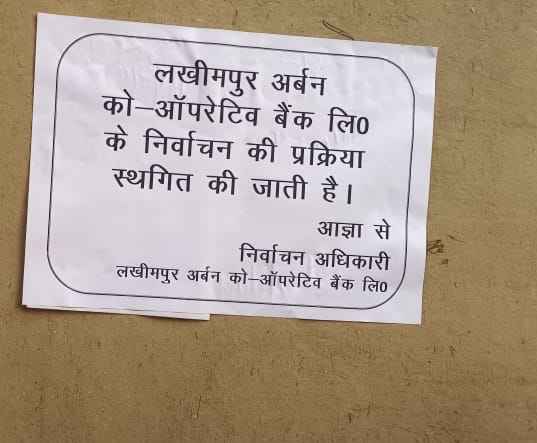 लखीमपुर अर्बन
को–ऑपरेटिव बैंक लि0
के निर्वाचन की प्रक्रिया
स्थगित की जाती है।
आज्ञा से
निर्वाचन अधिकारी
लखीमपुर अर्बन को–ऑपरेटिव बैंक लि0